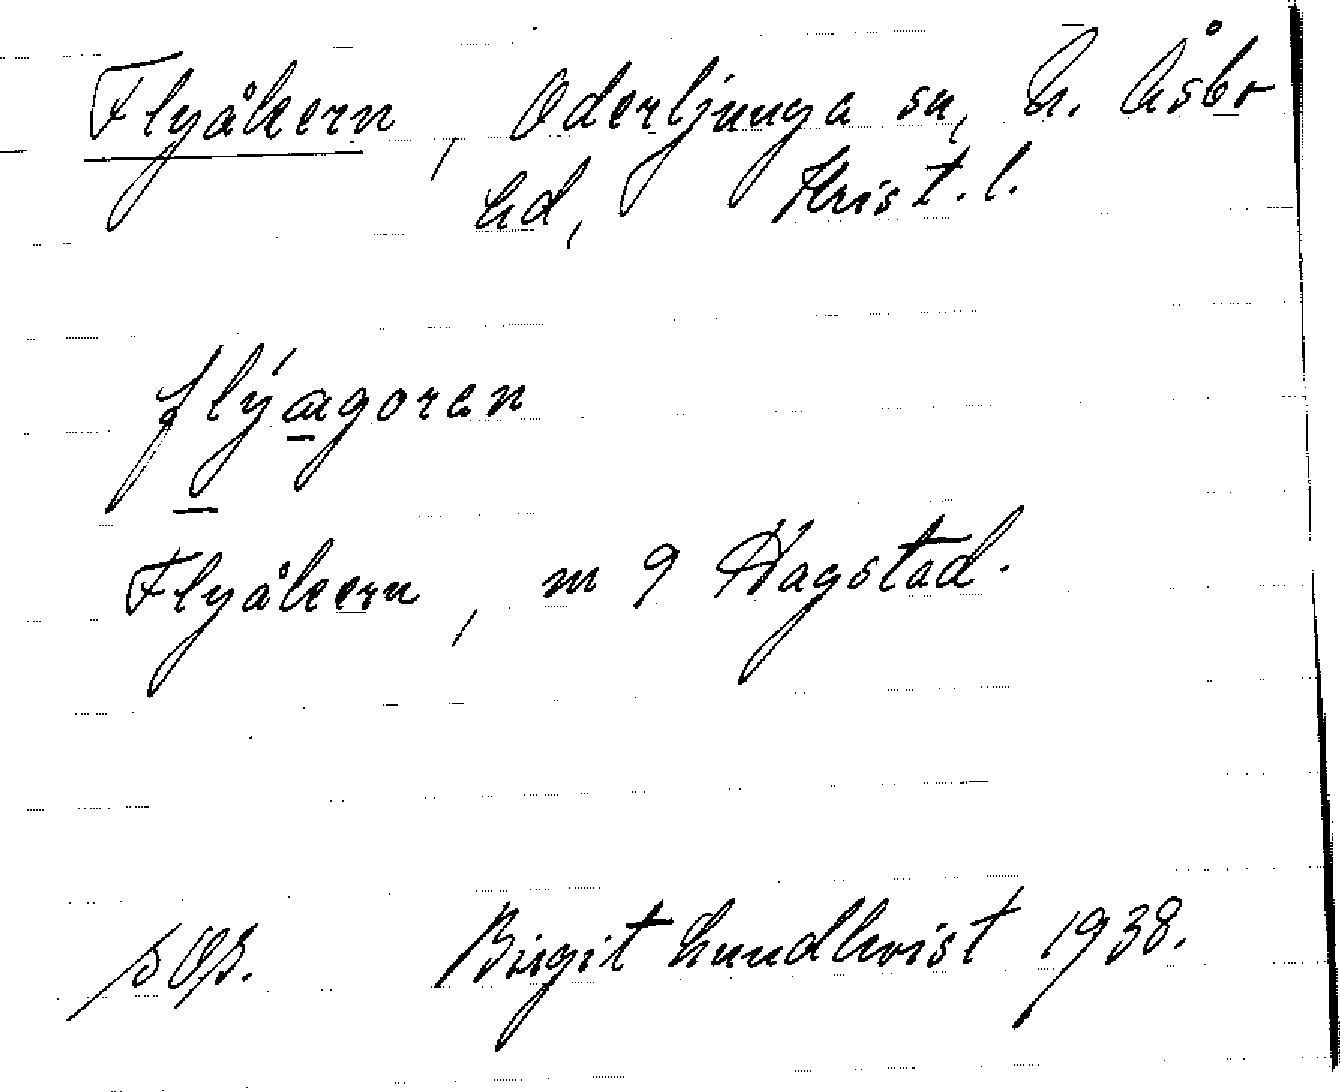 Flyåkern, Oderljunga sn, N. Åsbo
hd, Krist. l.
flý́ągoren
Flyåkern, m 9 Hagstad.
Birgit Lundkvist 1938.